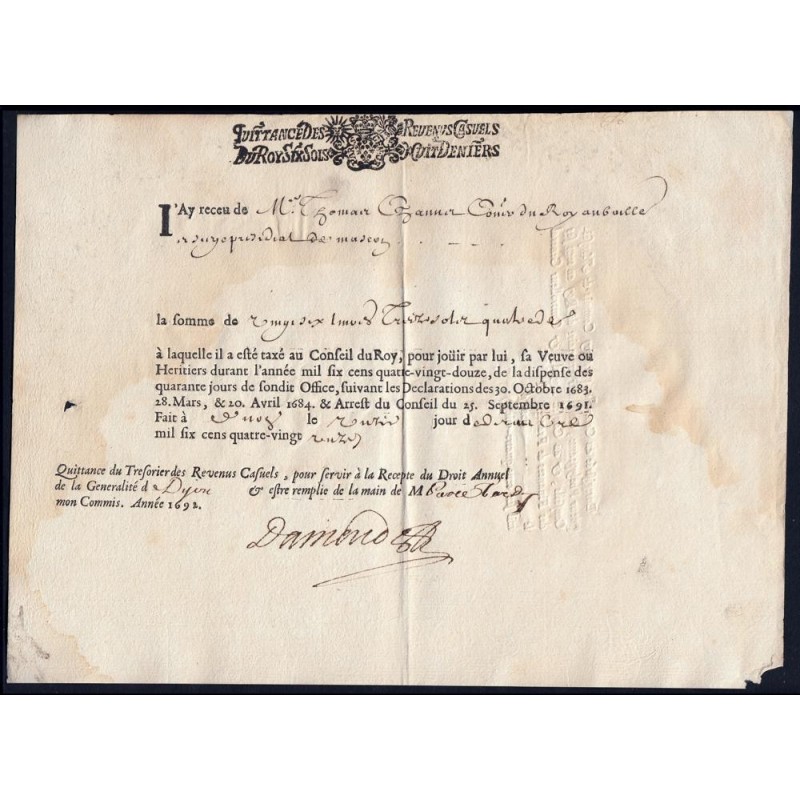 QUITTANCE DES REVENUS CASUELS
DU ROY SIX SOLS HUIT DENIERS
I'Ay receu de Mre Thomas du Roy au baille
presidial de mascon
la somme de vingt six livres Treize sols quatre d
à laquelle il a esté taxé au Conseil du Roy, pour joüir par lui, sa Veuve ou
Heritiers durant l'année mil six cens quatre-vingt-douze, de la dispense des
quarante jours de sondit Office, suivant les Declarations des 30. Octobre 1683.
28. Mars, & 20. Avril 1684. & Arrest du Conseil du 25. Septembre 1691.
Fait à le jour de
mil six cens quatre-vingt unze
Quittance du Tresorier des Revenus Casuels, pour servir à la Recepte du Droit Annuel
de la Generalité d Dijon & estre remplie de la main de M
mon Commis. Année 1692.
Damond